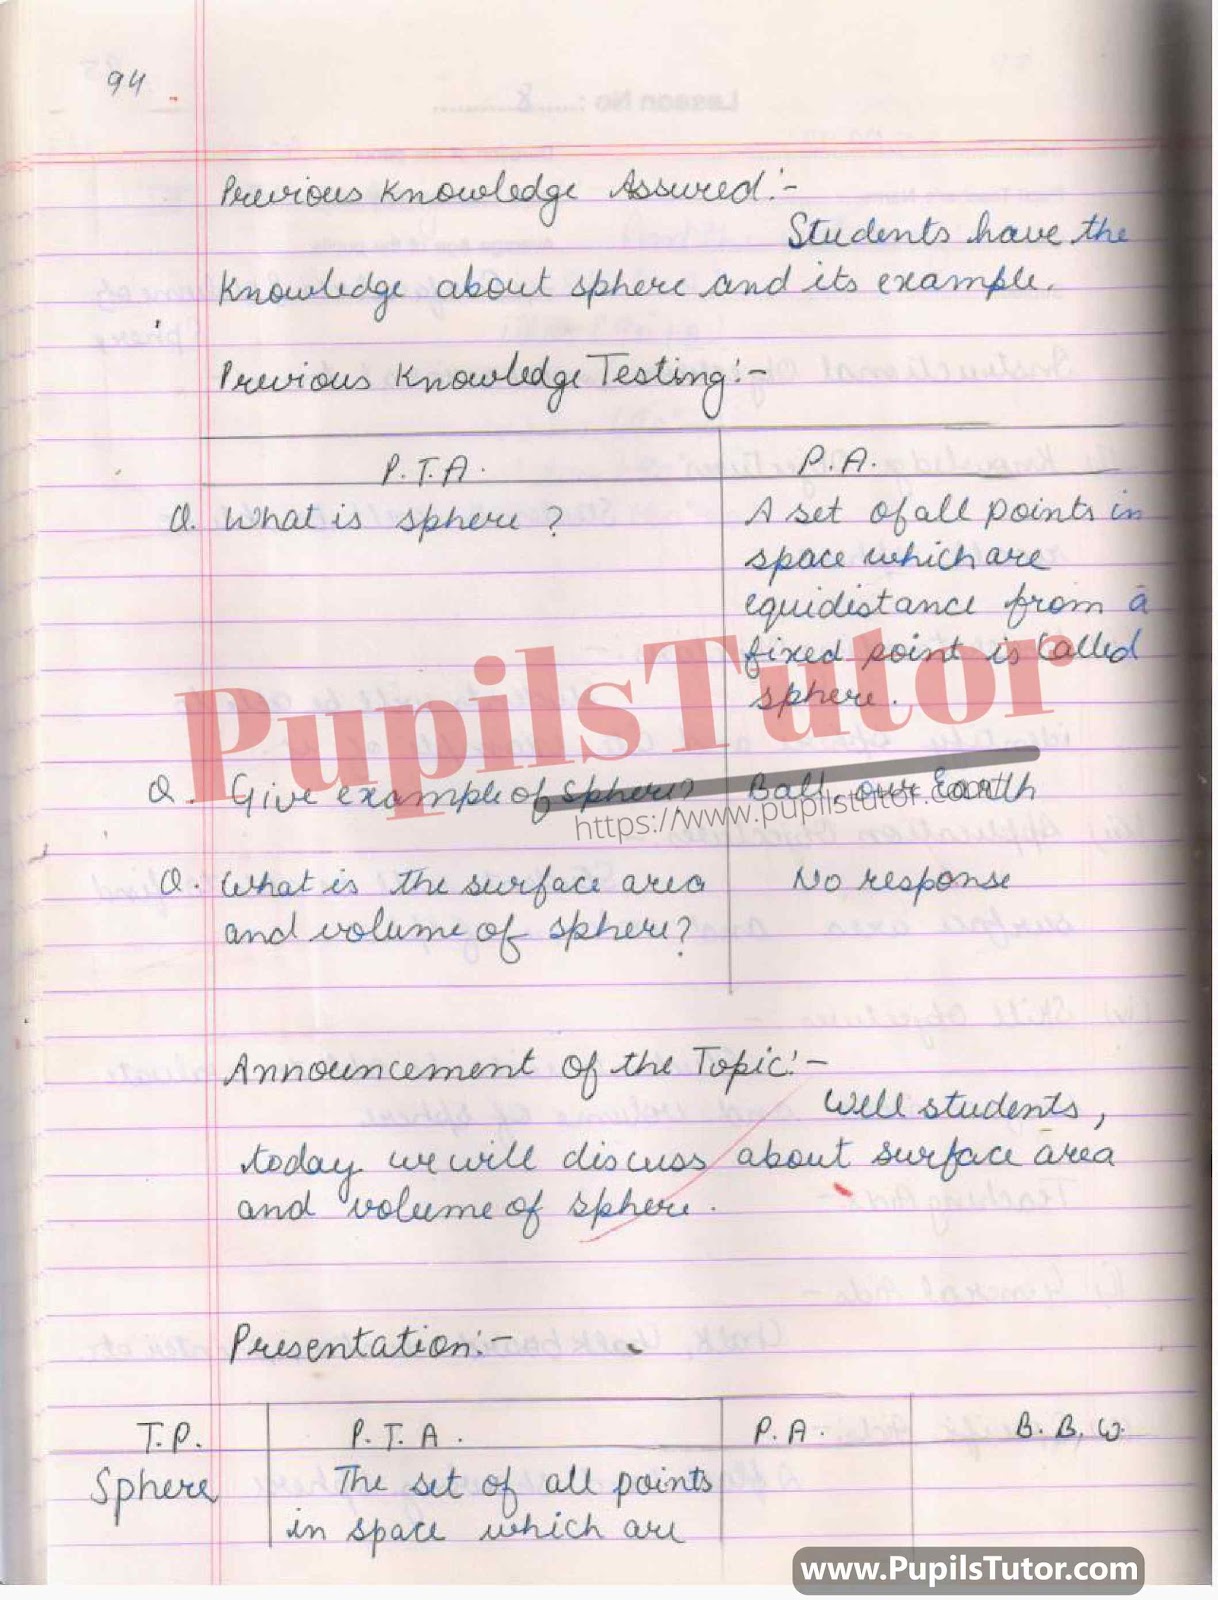 94
Previous Knowledge Assured:-
Students have the
Knowledge about sphere and its example.
Previous Knowledge Testing:-
P.T.A.
P.A.
Q. What is sphere?
A set of all points in
space which are
equidistance from a
fixed point is Called
sphere.
PupilsTutor
https://www.pupilstutor.com
Q. Give example of sphere?
Ball, our Earth
Q. What is the surface area
and volume of sphere?
No response
Announcement of the Topic:-
Well students,
today we will discuss about surface area
and volume of sphere.
Presentation:-
T.P.
P.T.A.
P.A.
B.B.W.
Sphere
The set of all points
in space which are
www.PupilsTutor.com